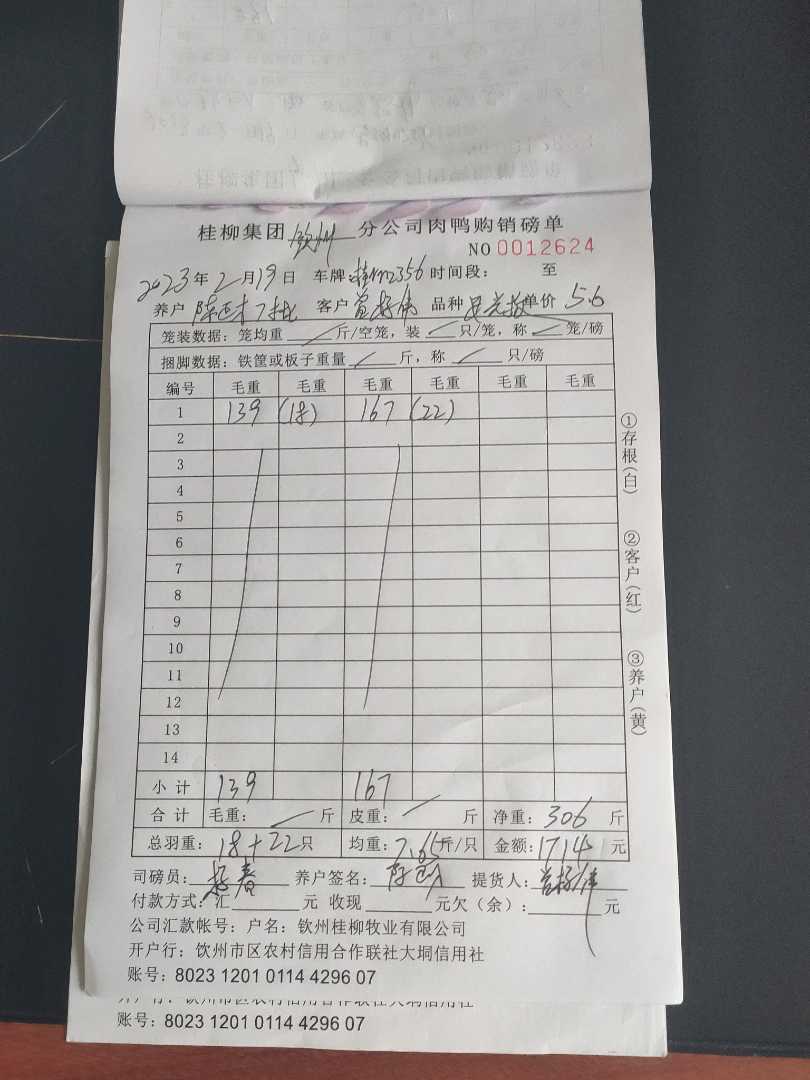 桂柳集团 钦州 分公司肉鸭购销磅单
NO 0012624
2023年2月19日 车牌: 时间段: 至
养户 陈 7批 客户 曾 伟 品种 单价 5.6
笼装数据: 笼均重 斤/空笼, 装 只/笼, 称 笼/磅
捆脚数据: 铁筐或板子重量 斤, 称 只/磅
编号 毛重 毛重 毛重 毛重 毛重 毛重
1 139 (18) 167 (22)
2
3
4
5
6
7
8
9
10
11
12
13
14
小计 139 167
合计 毛重: 斤 皮重: 斤 净重: 306 斤
总羽重: 18+22 只 均重: 7.65 斤/只 金额: 1714 元
司磅员: 春 养户签名: 陈 提货人: 曾 伟
付款方式: 汇 元 收现 元欠(余): 元
公司汇款帐号: 户名: 钦州桂柳牧业有限公司
开户行: 钦州市区农村信用合作联社大垌信用社
账号: 8023 1201 0114 4296 07
①存根(白)
②客户(红)
③养户(黄)
开户行: 钦州市区农村信用合作联社大垌信用社
账号: 8023 1201 0114 4296 07